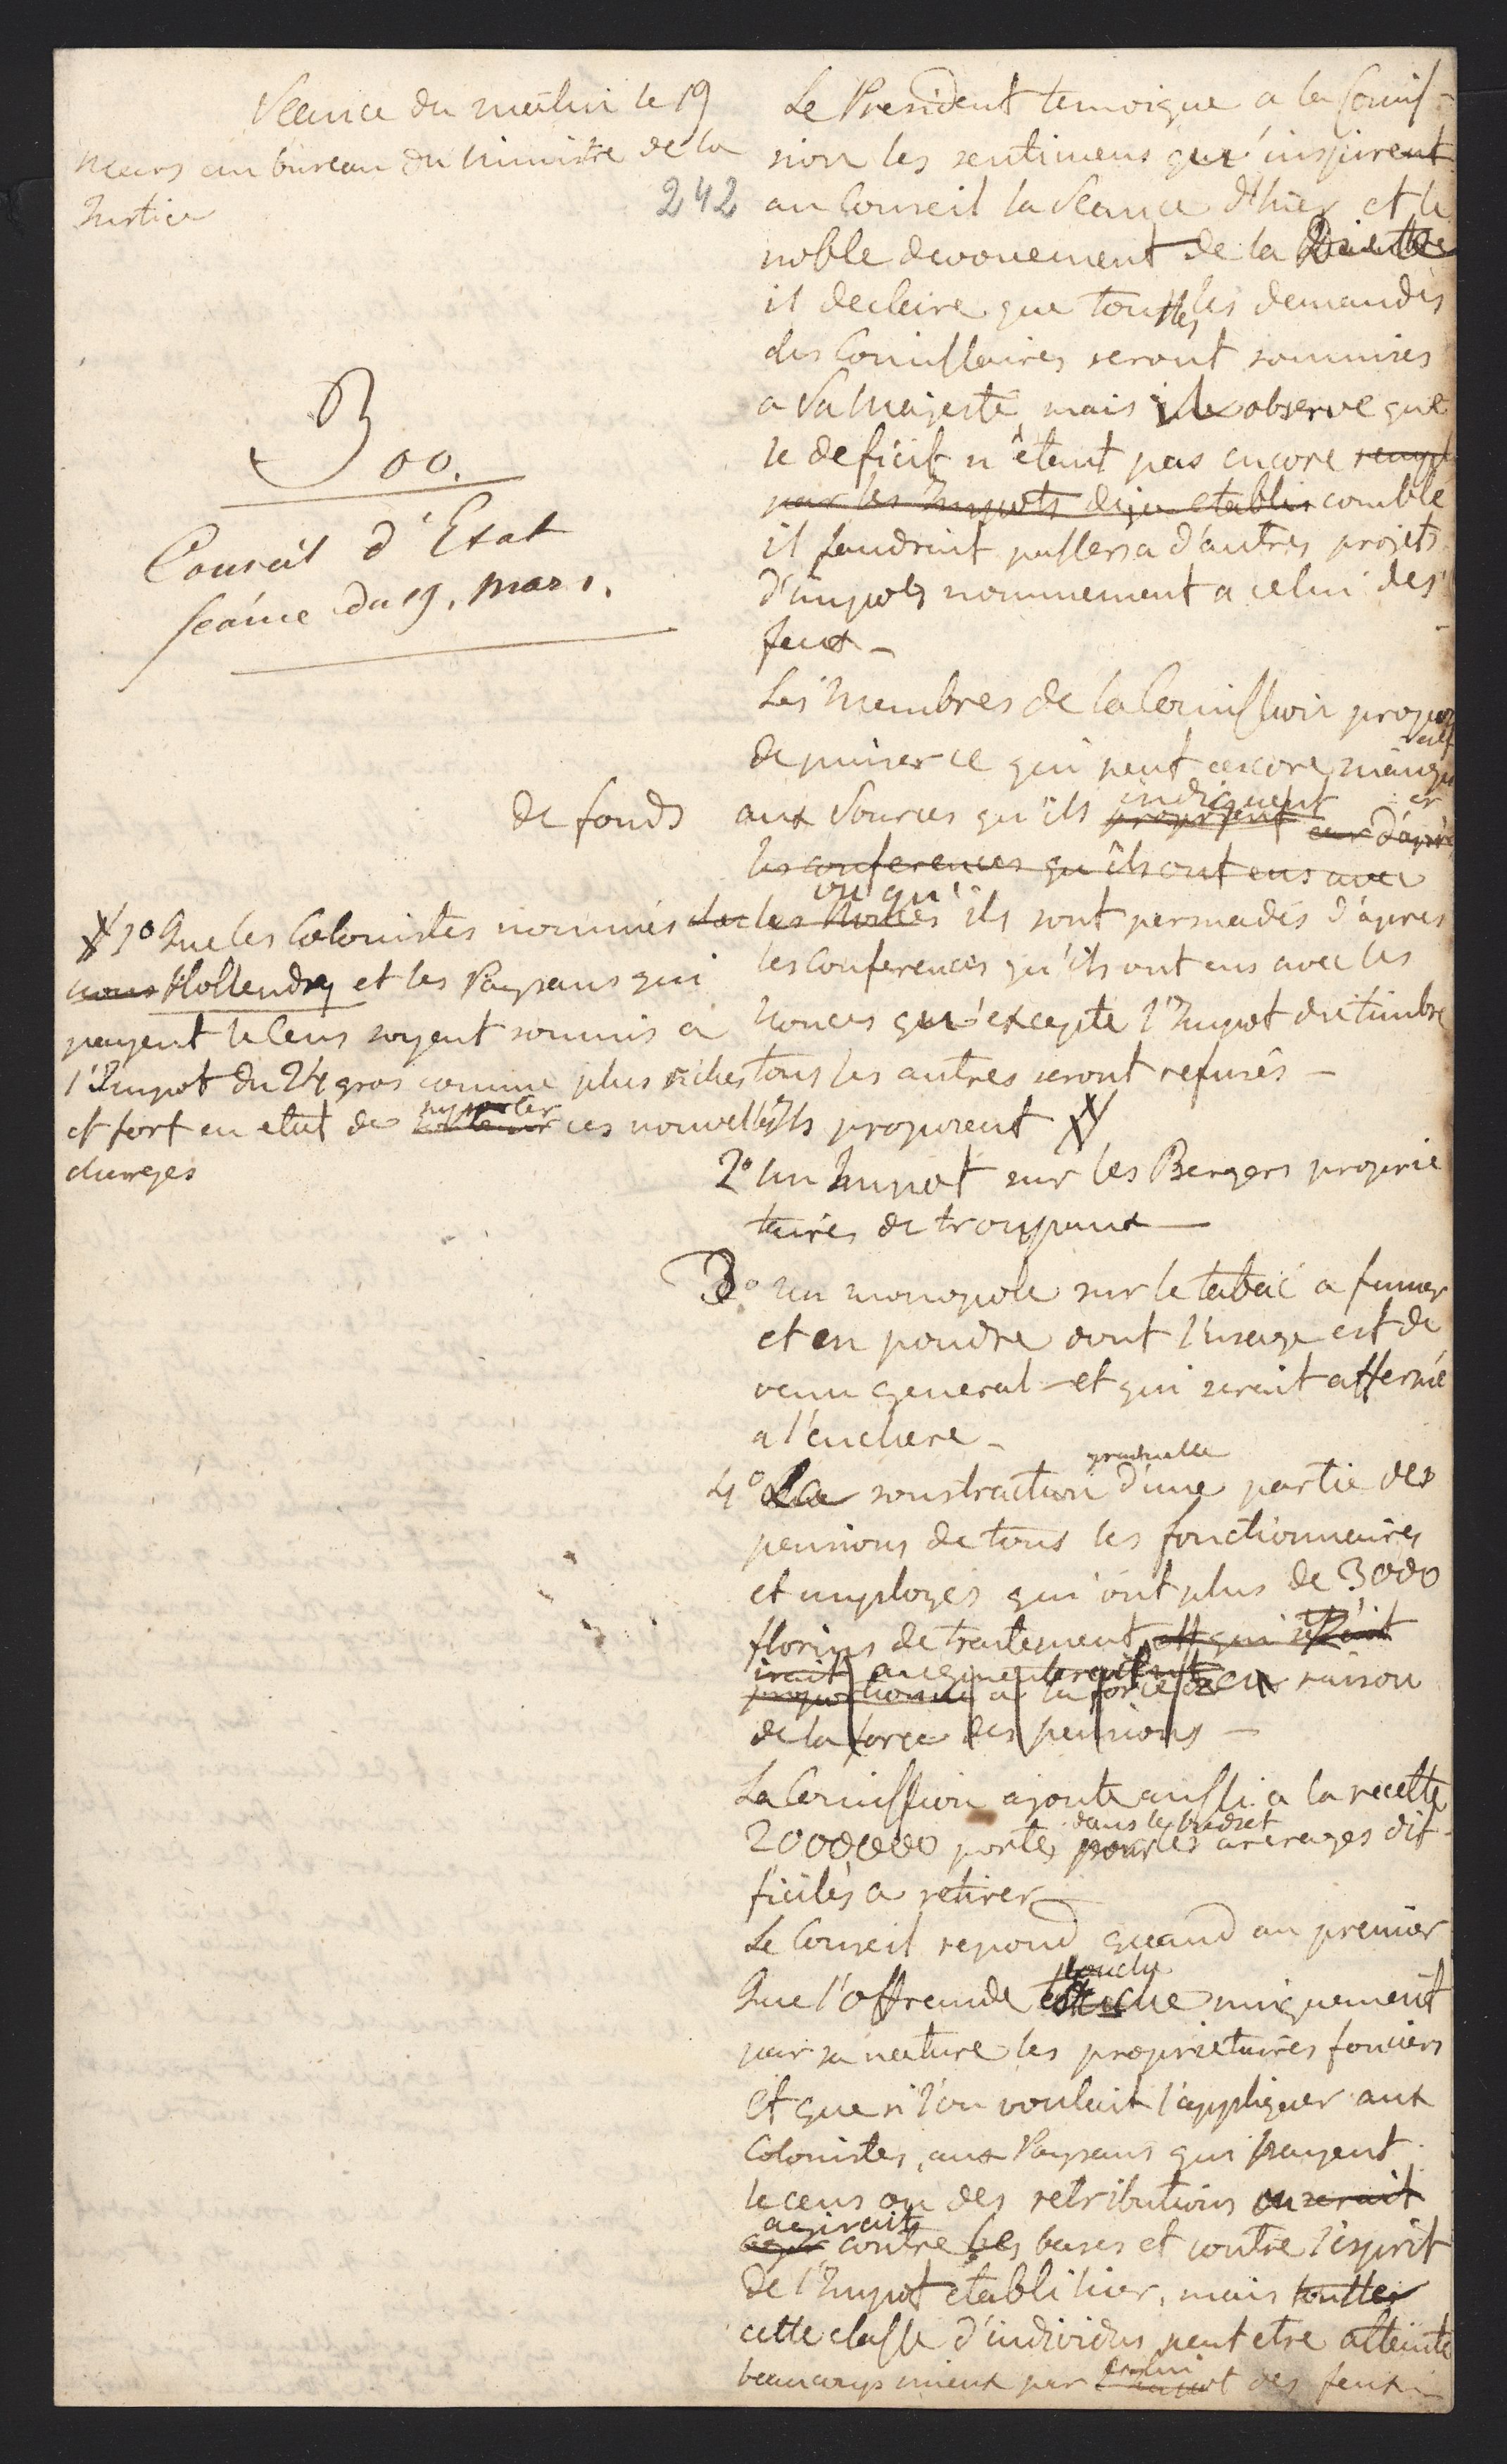 Séance du matin le 19
Mars au bureau du Ministre de la
Justice
242
Boo.
Conseil d'Etat
seánce du 19. mars.
Le President temoigne a la Comis-
sion les sentimens qu'inspirent
au Conseil la Seance d'hier et le
noble devouement de la Diette
il declare que touttes les demandes
des Comissaires seront soumises
a Sa Majesté, mais il observe que
le deficit n'étant pas encore rempl
par les Impots deja etablis comblé
il faudroit passer a d'autres projets
d'impots nommement a celui des
feux -
Les Membres de la Comission propo
sent
de puiser ce qui peut encore manqu
er
de fonds aux Sources qu'ils proposent indiquent d'après
les conferences qu'ils ont eus avec
les Nonces ou qu'ils sont persuadés d'apres
les Conferences qu'ils ont eus avec les
Nonces qu'excepte l'Impot du timbre
tous les autres seront refusés -
Ils proposent X
X 1º Que les Colonistes nommés
Hollendry et les Paysans qui
payent le Cens soyent soumis a
l'Impot du 24 gros comme plus riches
et fort en etat de supporter ces nouvelles
charges
2º Un Impot sur les Bergers proprie
taires de troupeaux -
3º un monopole sur le tabac a fumer
et en poudre dont l'usage est de
venu general et qui seroit affermé
a l'enchere -
4º La soustraction graduelle d'une partie des
pensions de tous les fonctionnaires
et employes qui ont plus de 3000
florins de traitement et qui
irait augmenterait
proportionné a la force de en raison
de la force des pensions -
La Comission ajoute aussi a la recette
2000000 portes dans le budget pour les arerages dif-
ficiles a retirer
Le Conseil repond quand au premier
Que l'Offrande touche uniquement
par sa nature les proprietaires fonciers
Et que si l'on voulait l'appliquer aux
Colonistes, aux Paysans qui payent
le cens ou des retributions on serait
agir agiroit contre les bases et contre l'esprit
de l'Impot etabli hier, mais touttes
cette classe d'individus peut etre atteinte
beaucoup mieux par l'Impot celui des feux -